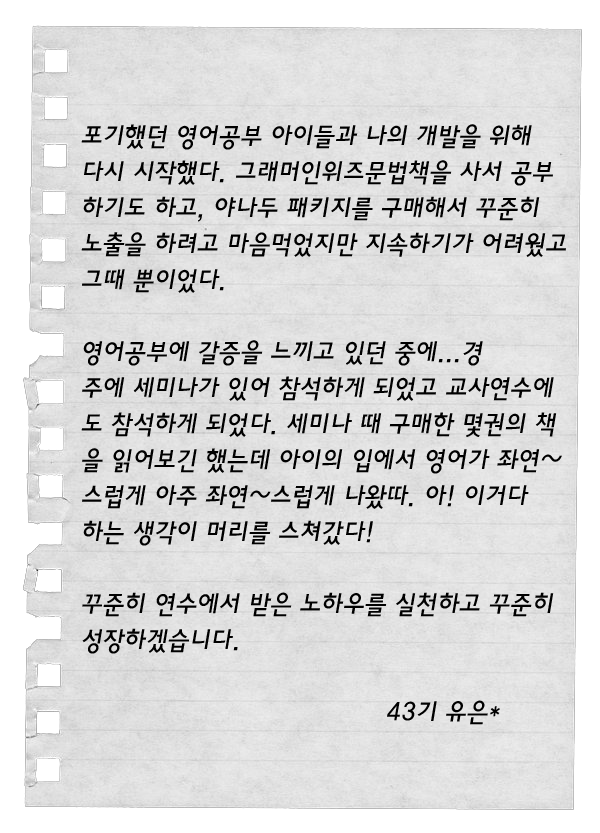 포기했던 영어공부 아이들과 나의 개발을 위해
다시 시작했다. 그래머인위즈문법책을 사서 공부
하기도 하고, 야나두 패키지를 구매해서 꾸준히
노출을 하려고 마음먹었지만 지속하기가 어려웠고
그때 뿐이었다.
영어공부에 갈증을 느끼고 있던 중에...경
주에 세미나가 있어 참석하게 되었고 교사연수에
도 참석하게 되었다. 세미나 때 구매한 몇권의 책
을 읽어보긴 했는데 아이의 입에서 영어가 좌연~
스럽게 아주 좌연~스럽게 나왔따. 아! 이거다
하는 생각이 머리를 스쳐갔다!
꾸준히 연수에서 받은 노하우를 실천하고 꾸준히
성장하겠습니다.
43기 유은*